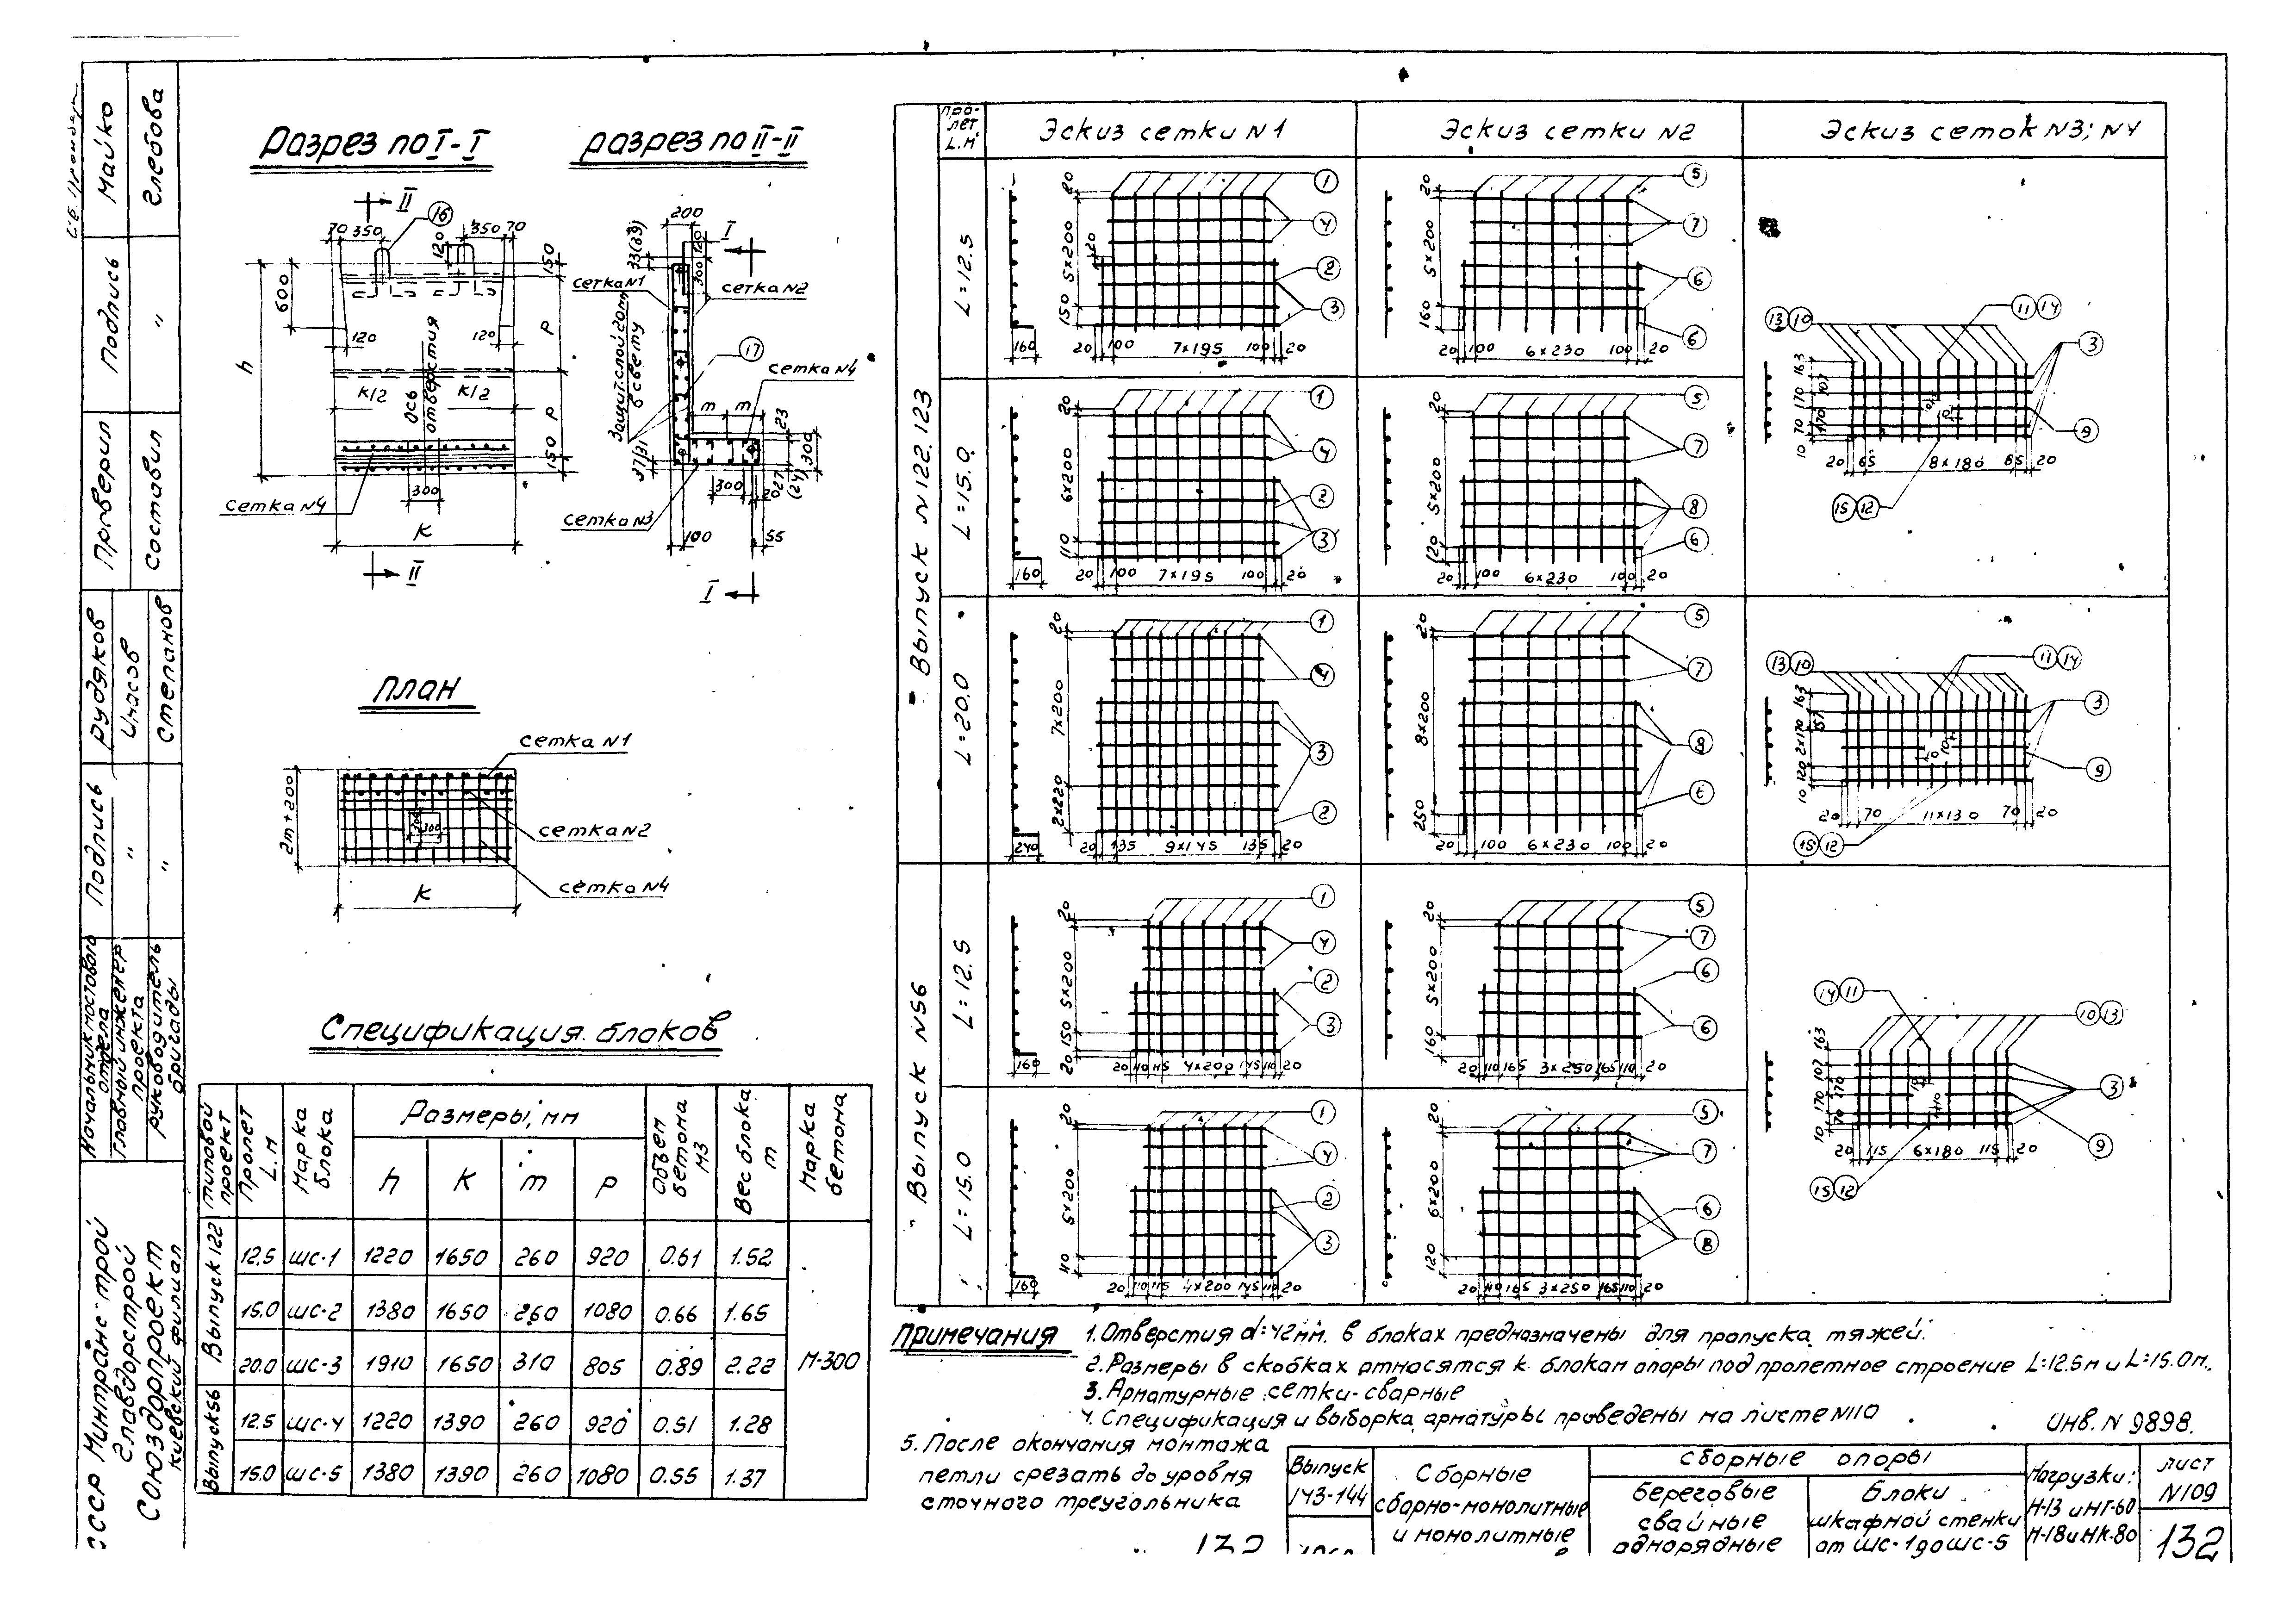 Разрез по I-I
разрез по II-II
II
16
70 350
350 70
120
150
600
h
120
120
P
K/2
K/2
Ось отверстия
P
150
300
сетка N4
K
II
200
I
33(83)
120
300
сетка N1
сетка N2
Защит.слой 20мм
в свету
17
сетка N4
m
m
23
300
300
20
27
(24)
сетка N3
100
55
I
План
сетка N1
2m+200
300
300
сетка N2
сетка N4
K
Спецификация блоков
типовой проект
Пролет L.м
Марка блока
Размеры, мм
Объем бетона м3
Вес блока т
Марка бетона
h
K
m
P
Выпуск 122
12.5 ШС-1 1220 1650 260 920 0.61 1.52
15.0 ШС-2 1380 1650 260 1080 0.66 1.65
20.0 ШС-3 1910 1650 310 805 0.89 2.22
М-300
Выпуск56
12.5 ШС-4 1220 1390 260 920 0.51 1.28
15.0 ШС-5 1380 1390 260 1080 0.55 1.37
про-
лет
L.м
Эскиз сетки N1
Эскиз сетки N2
Эскиз сеток N3; N4
Выпуск N122.123
L=12.5
20
5×200
150
20
160
20 100 7×195 100 20
1
4
2
3
20
5×200
160
20 100 6×230 100 20
5
7
6
6
L=15.0
20
6×200
110
160
20 100 7×195 100 20
1
4
2
3
20
5×200
120
20 100 6×230 100 20
5
7
8
6
13 10
11 14
3
9
163
107
170
170
70
10
20 65 8×180 65 20
15 12
L=20.0
20
7×200
2×220
240
20 135 9×145 135 20
1
4
3
2
20
8×200
250
20 100 6×230 100 20
5
7
8
6
13 10
11 14
3
9
163
2×170
120
10
20 70 11×130 70 20
15 12
Выпуск N56
L=12.5
20
5×200
150
20
160
20 110 145 4×200 145 110 20
1
4
2
3
20
5×200
160
20 110 165 3×250 165 110 20
5
7
6
6
L=15.0
20
110
160
4×200 145 110 20
1
4
2
3
20
6×200
120
20 110 165 3×250 165 110 20
5
7
6
8
14 11
10 13
3
9
163
107
170
170
70
10
20 115 6×180 115 20
15 12
Примечания
1. Отверстия d=42мм. в блоках предназначены для пропуска тяжей.
2. Размеры в скобках относятся к блокам опоры под пролетное строение L=12.5м и L=15.0м.
3. Арматурные сетки-сварные
4. Спецификация и выборка арматуры проведены на листе N110
5. После окончания монтажа
петли срезать до уровня
сточного треугольника
Инв. N 9898.
Выпуск
143-144
Сборные
сборно-монолитные
и монолитные
сборные опоры
береговые
свайные
однорядные
Блоки
шкафной стенки
от ШС-1 до ШС-5
Нагрузки:
Н-13 и НГ-60
Н-18 и НК-80
лист
N109
132
132
Майко
Глебова
Подпись
"
Проверил
Составил
Рудяков
Степанов
Подпись
"
"
Начальник мостового отдела
главный инженер проекта
руководитель бригады
СССР
Главдорстрой
Союздорпроект
киевский филиал